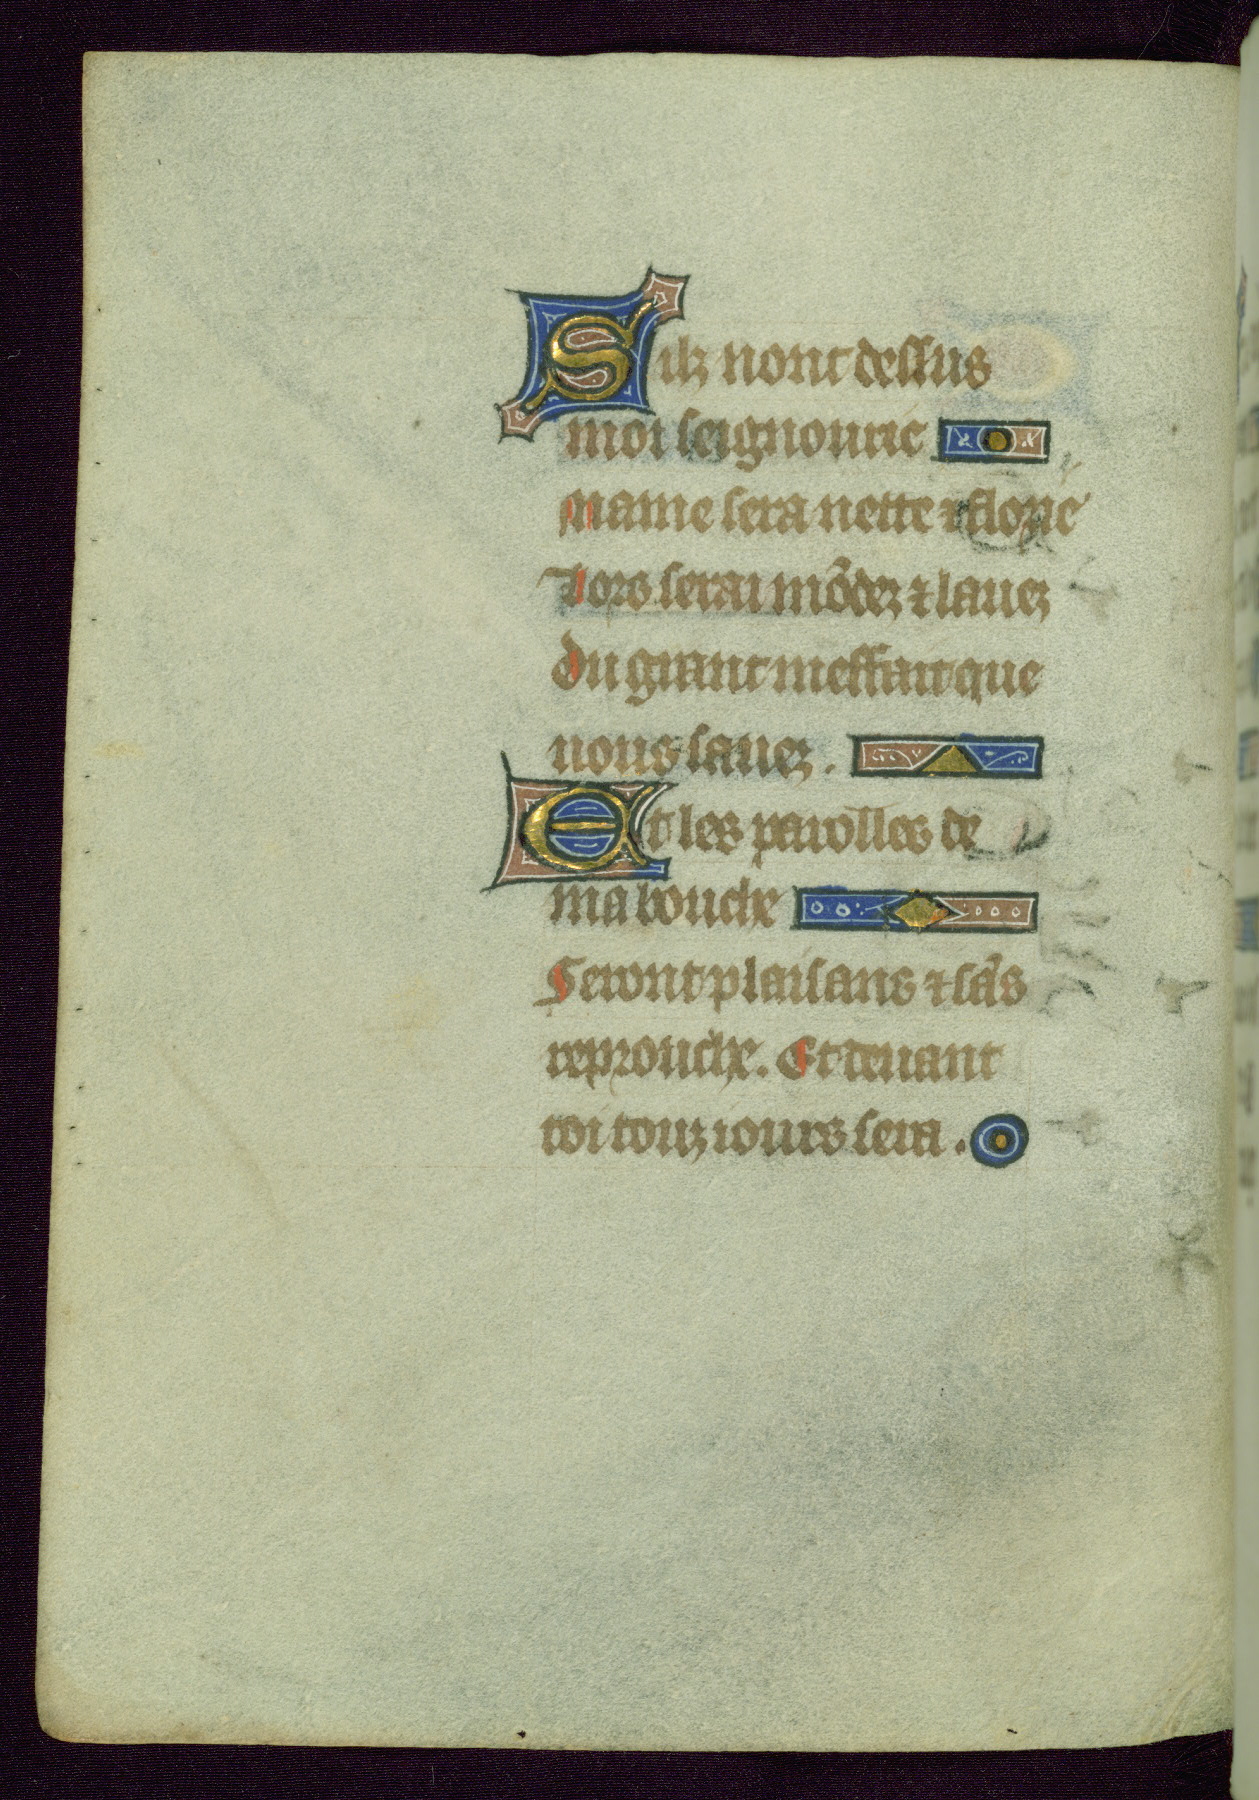 Silz nont dessus
moi seignourie
mame sera nette ⁊ florie
Lors serai mōdez ⁊ lauez
du grant meffait que
uous sauez.
Et les parolles de
ma bouche
Seront plaisans ⁊ sās
reprouche. Et deuant
toi touz iours sera.